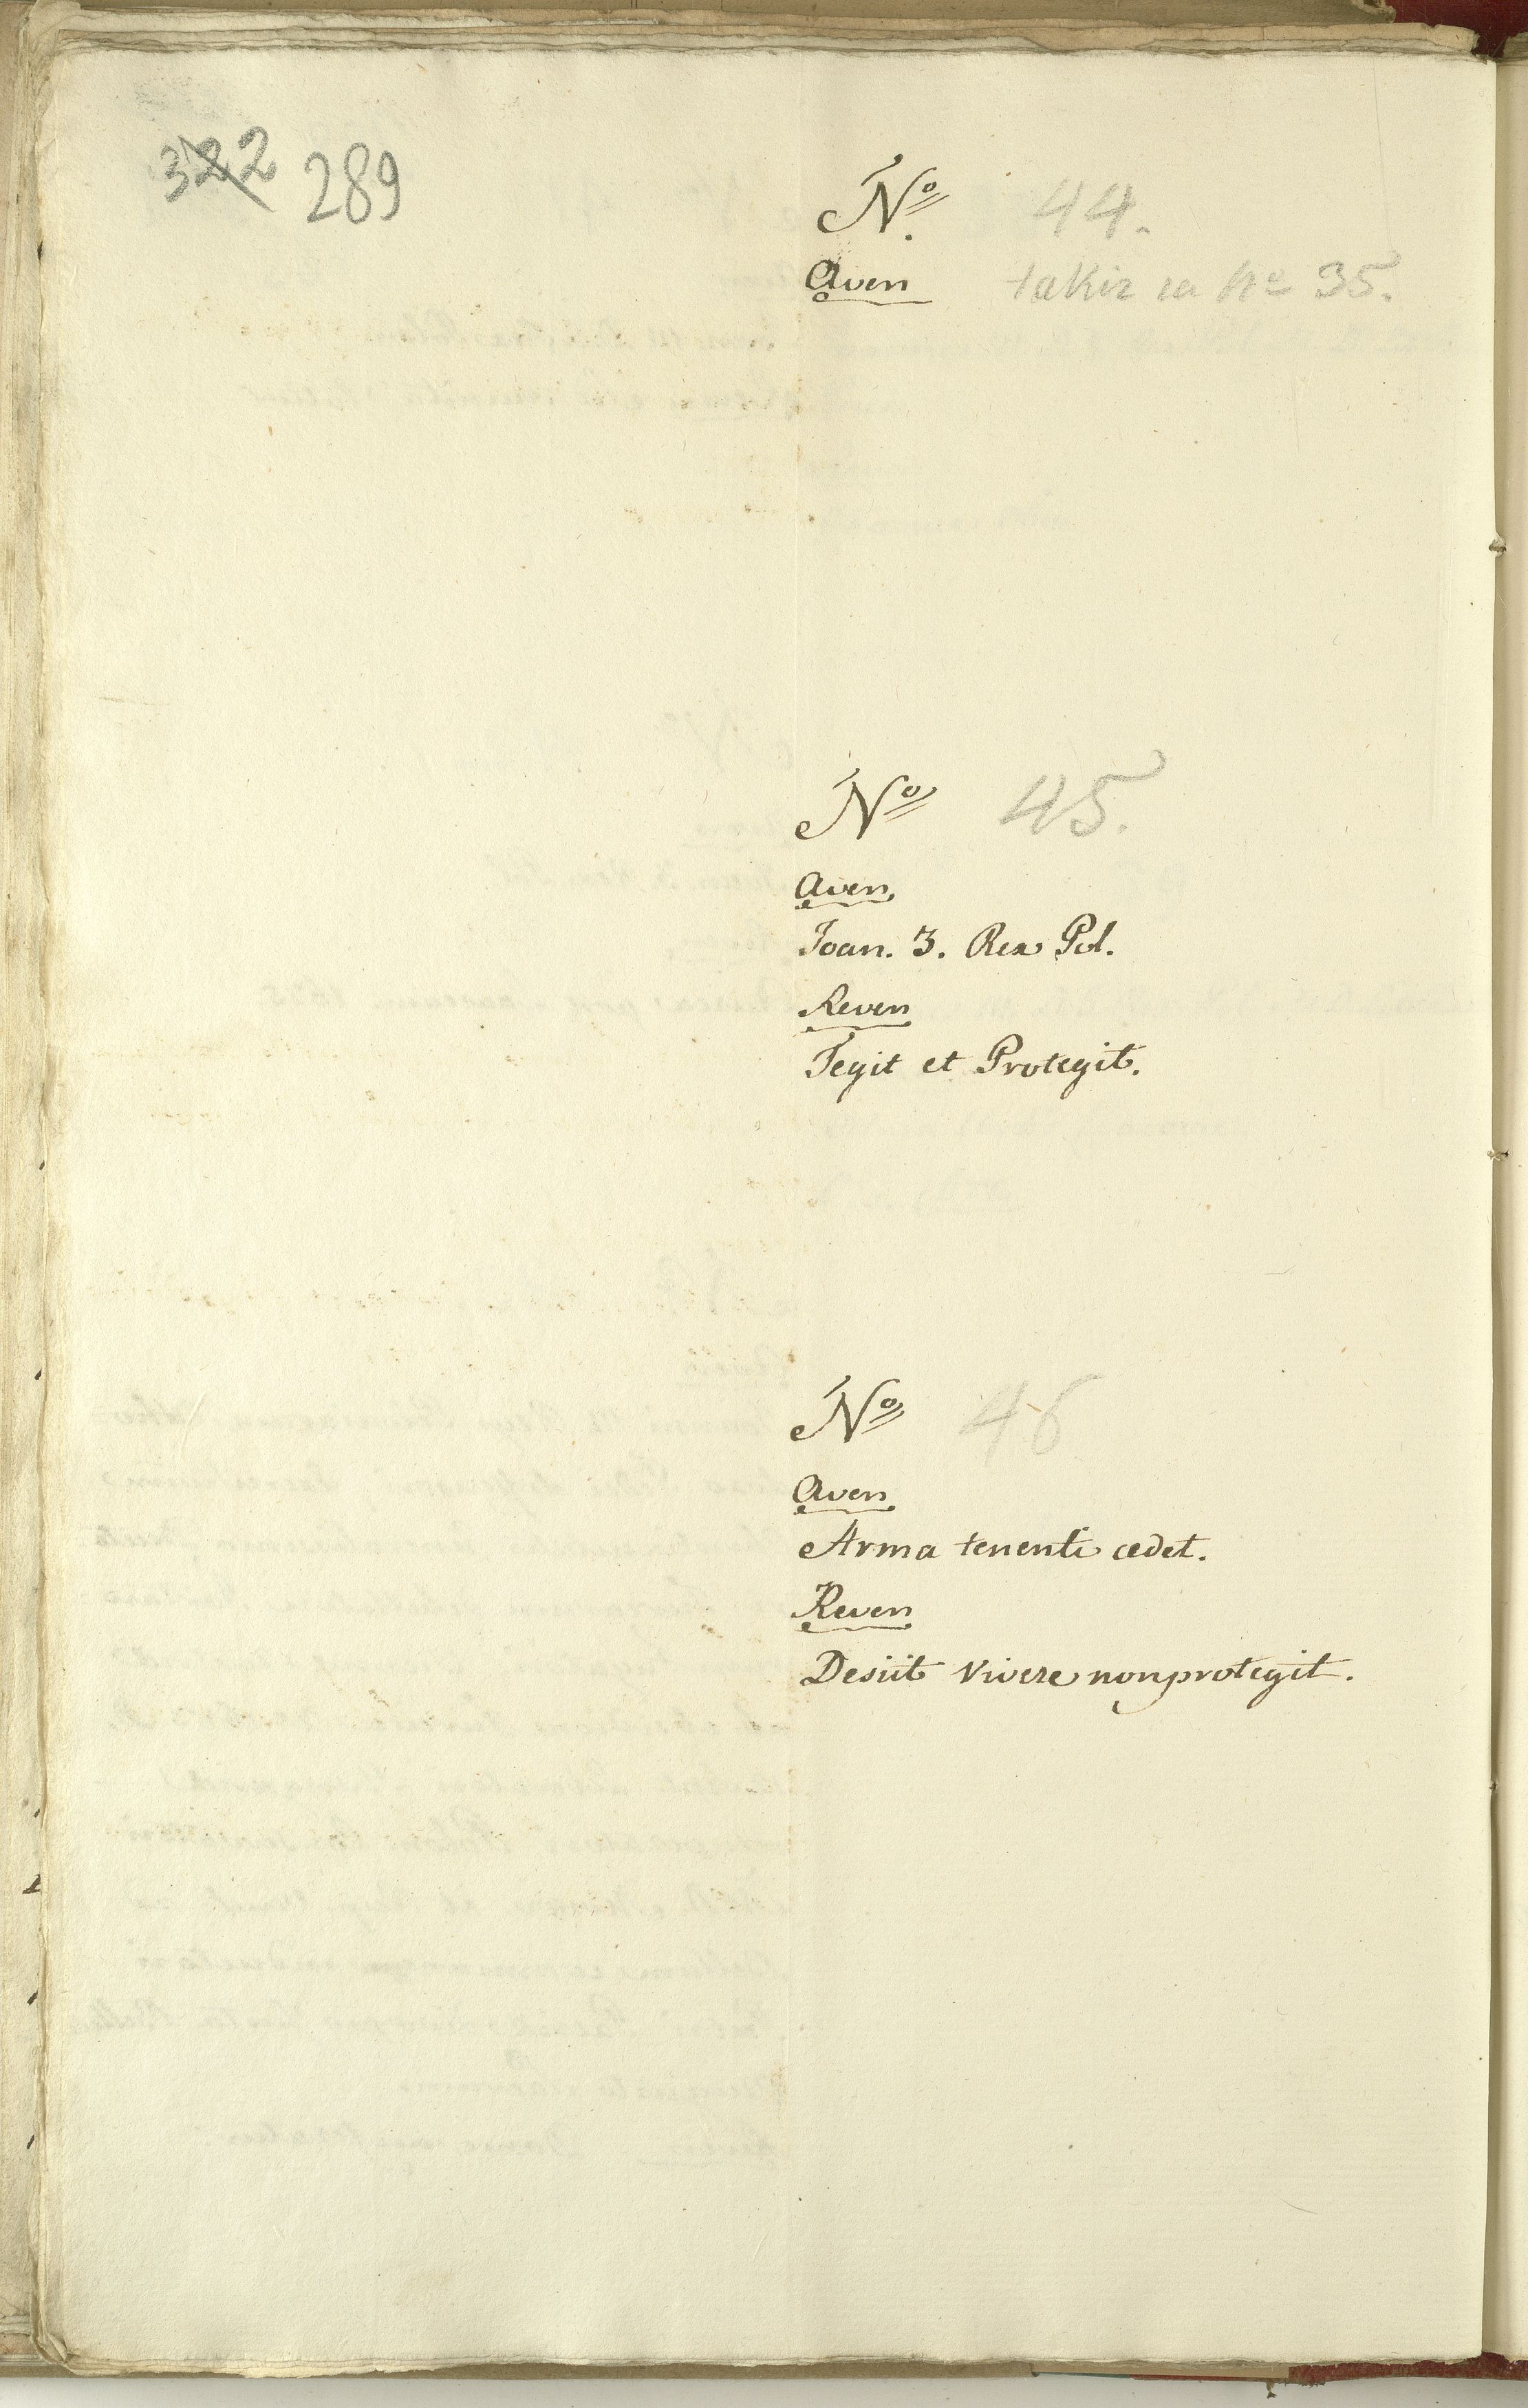 322 289
No 44.
Avers
takiż na No 35.
No 45.
Avers
Ioan. 3. Rex Pol.
Revers
Tegit et Protegit.
No 46
Avers
Arma tenenti cedet.
Revers
Desiit vivere non protegit.